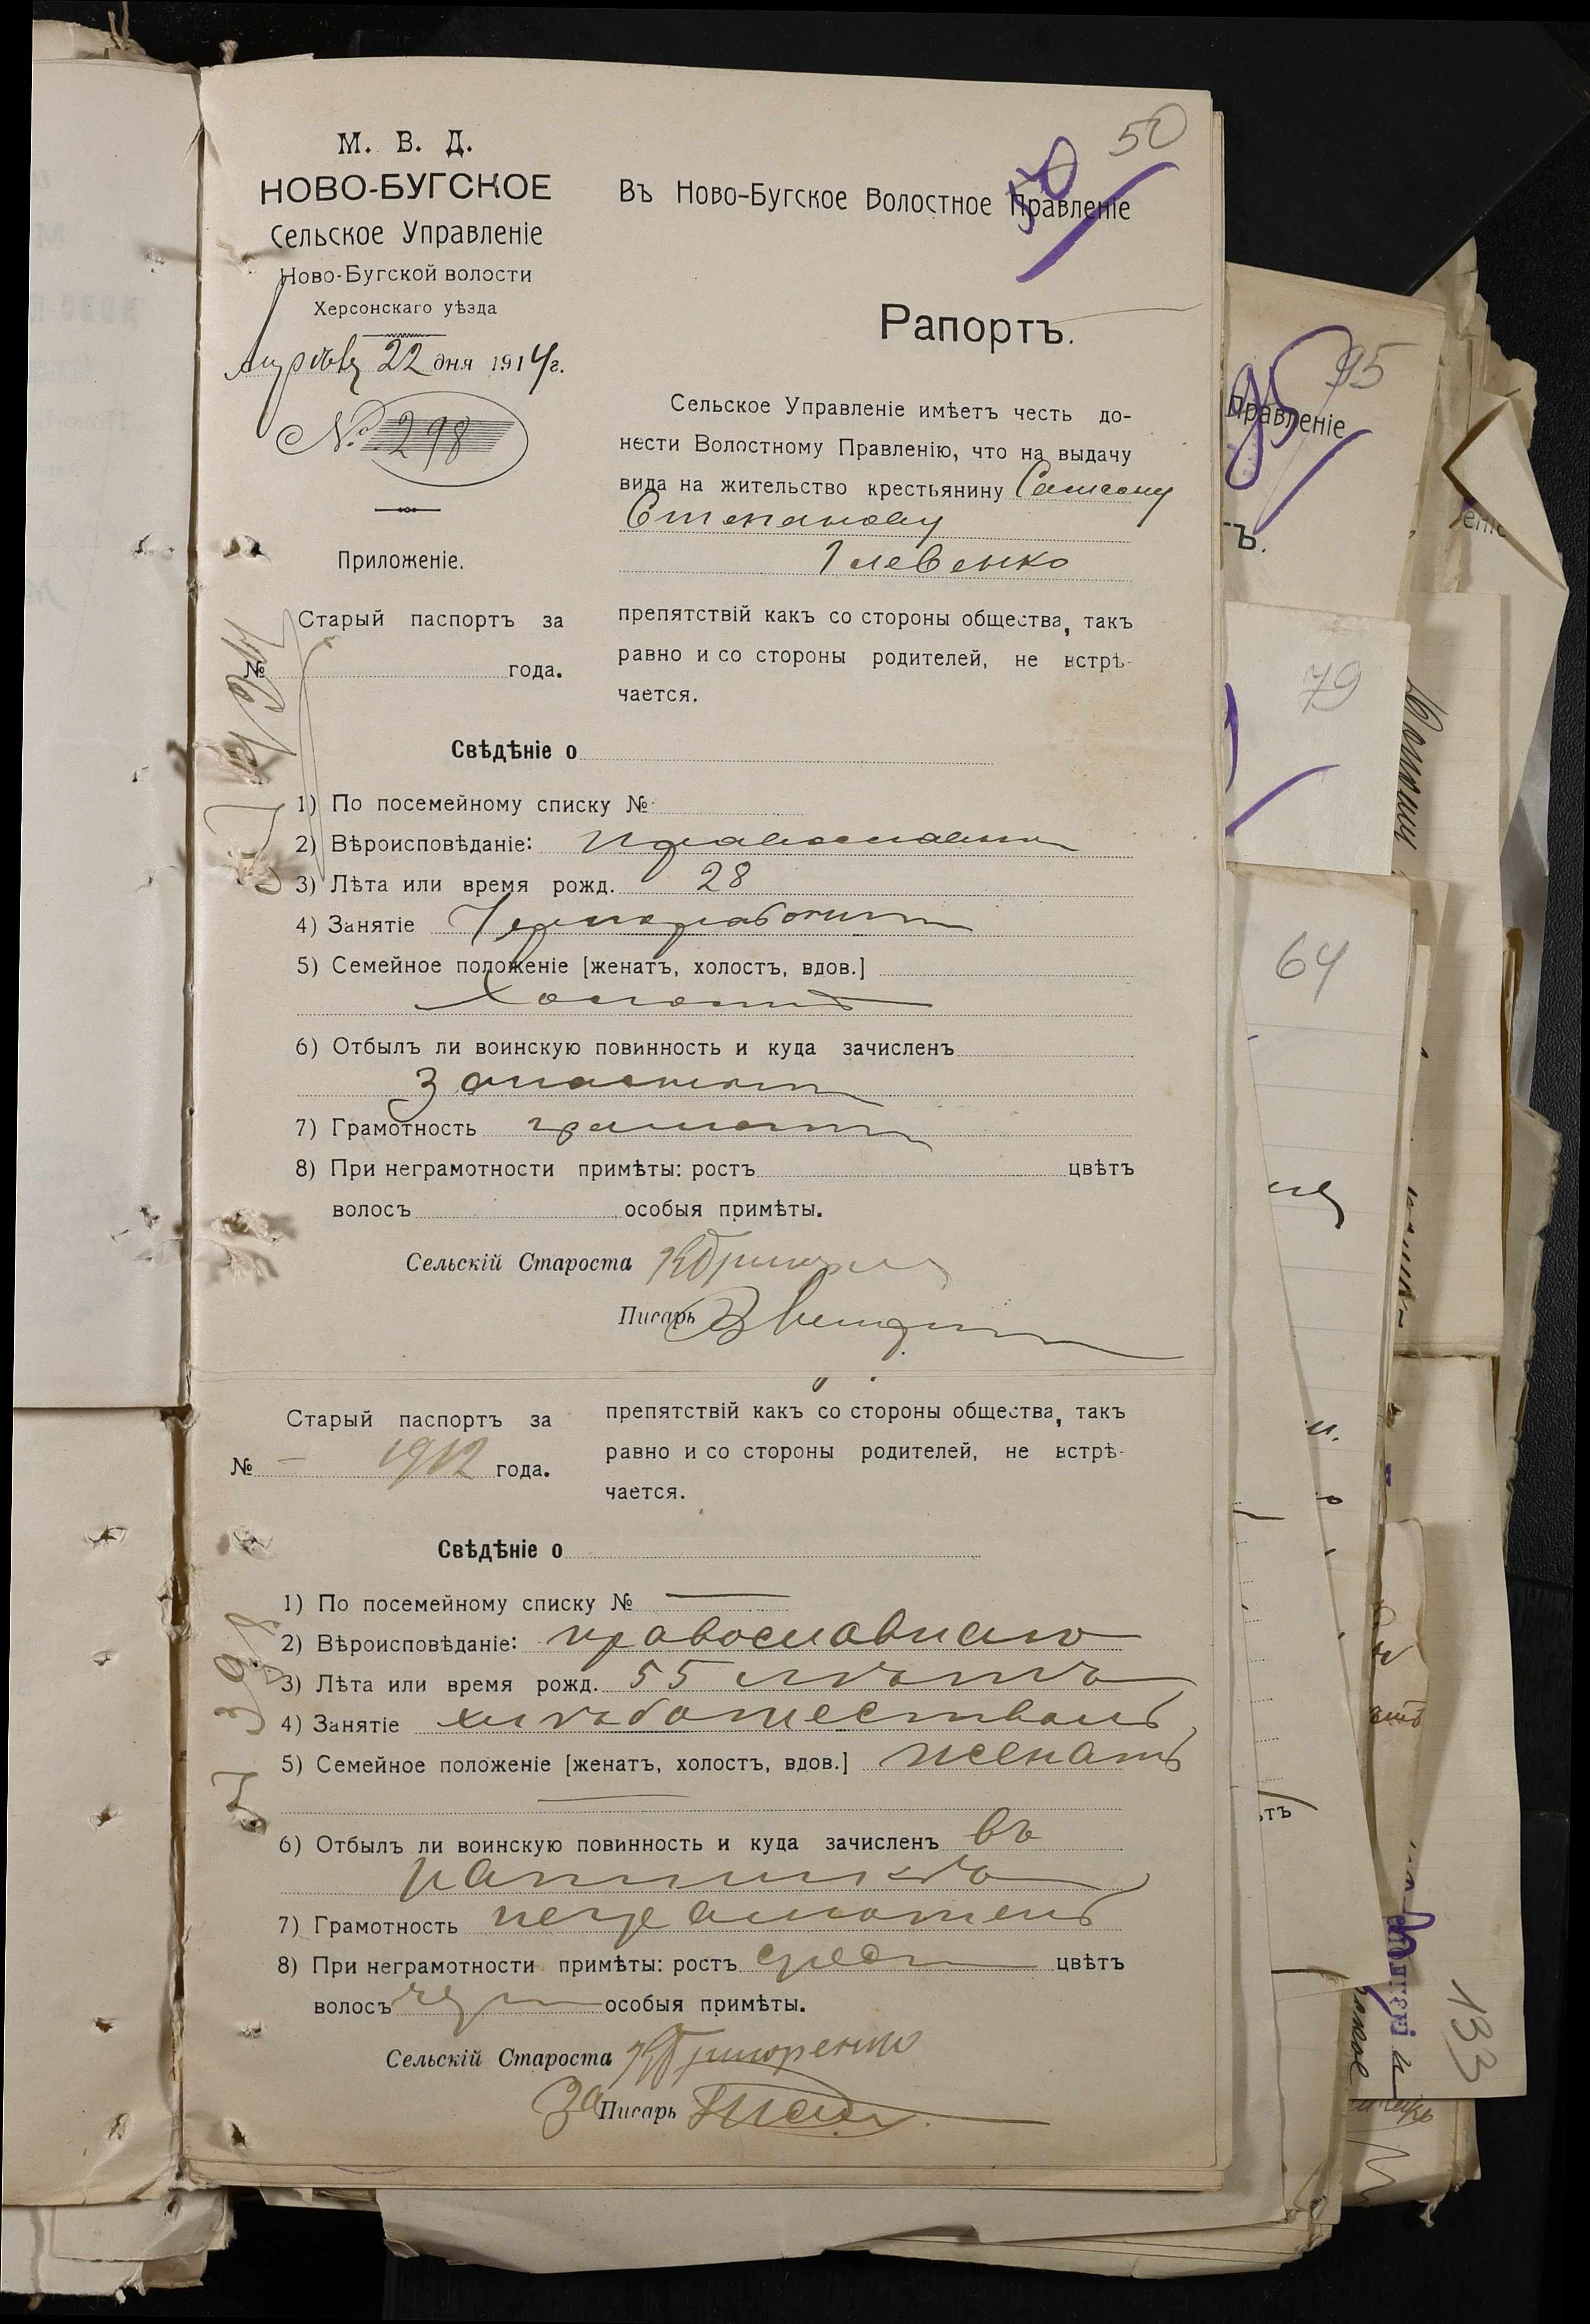 50
50
М. В. Д.
НОВО-БУГСКОЕ
Сельское Управленіе
Ново-Бугской волости
Херсонскаго уѣзда
22 дня 1914 г.
№ 298
Приложеніе.
Старый паспортъ за
№ года.
Въ Ново-Бугское Волостное Правленіе
Рапортъ.
Сельское Управленіе имѣетъ честь до-
нести Волостному Правленію, что на выдачу
вида на жительство крестьянину Самсону
Степанову
Глевенко
препятствій какъ со стороны общества, такъ
равно и со стороны родителей, не встрѣ-
чается.
Свѣдѣніе о
1) По посемейному списку №
2) Вѣроисповѣданіе:
3) Лѣта или время рожд. 28
4) Занятіе Чернорабочий
5) Семейное положеніе [женатъ, холостъ, вдов.]
Холостъ
6) Отбылъ ли воинскую повинность и куда зачисленъ
7) Грамотность
8) При неграмотности примѣты: ростъ цвѣтъ
волосъ особыя примѣты.
Сельскій Староста
Писарь
Старый паспортъ за
№ – 1912 года.
препятствій какъ со стороны общества, такъ
равно и со стороны родителей, не встрѣ-
чается.
Свѣдѣніе о
1) По посемейному списку № —
2) Вѣроисповѣданіе: православнаго
3) Лѣта или время рожд. 55 лѣтъ
4) Занятіе хлѣбопашествомъ
5) Семейное положеніе [женатъ, холостъ, вдов.] женатъ
6) Отбылъ ли воинскую повинность и куда зачисленъ въ
7) Грамотность неграмотенъ
8) При неграмотности примѣты: ростъ сред цвѣтъ
волосъ особыя примѣты.
Сельскій Староста Григоренко
За Писарь
95
95
Правленіе
ъ.
79
64
133